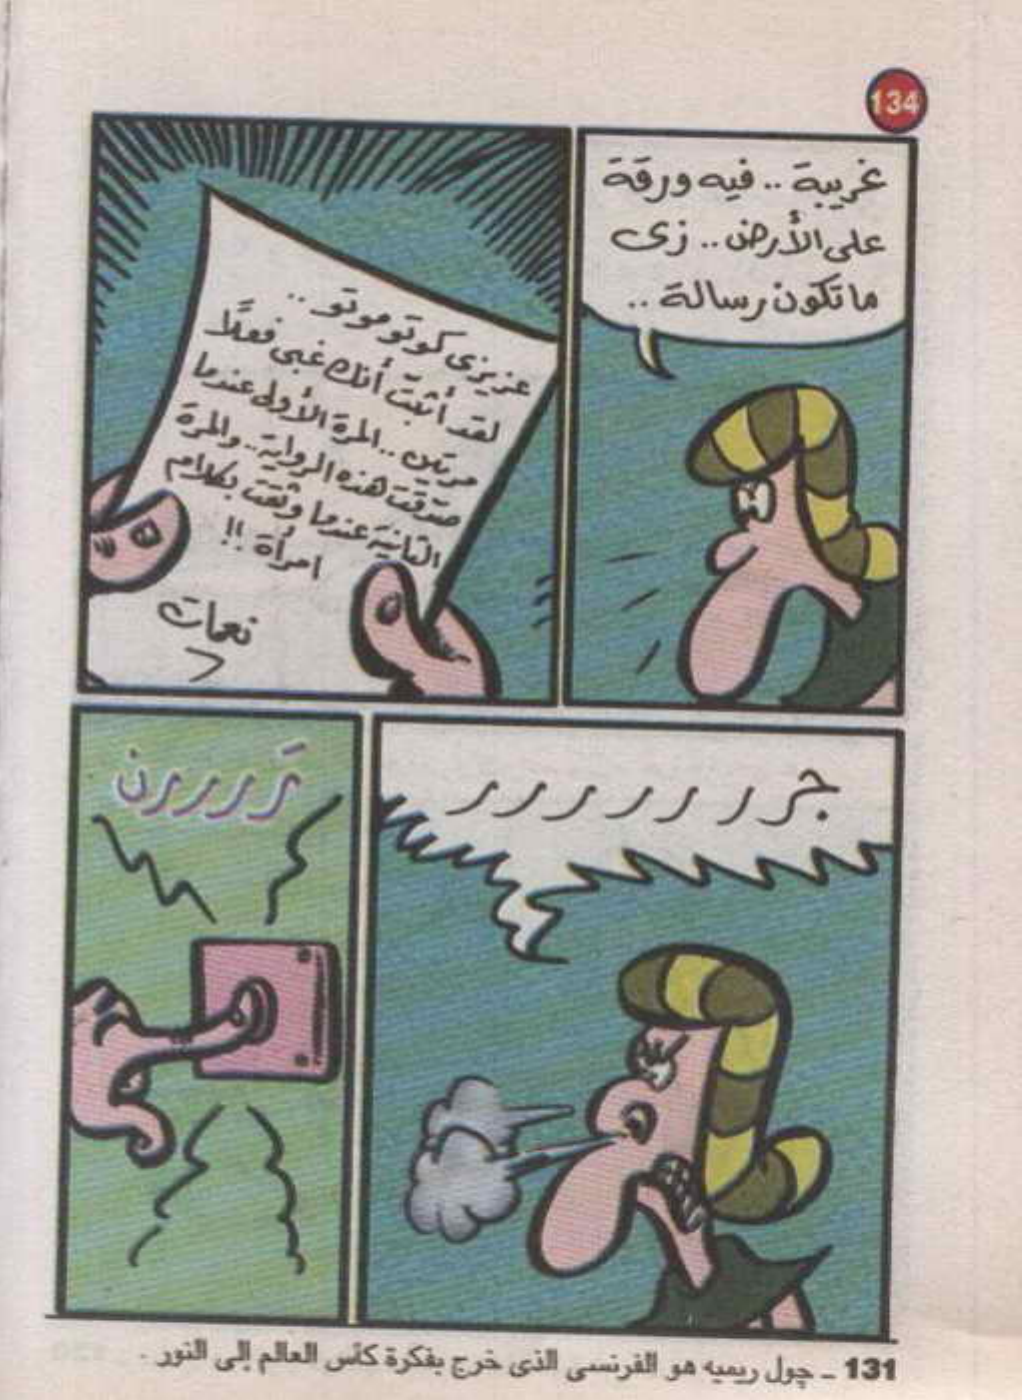 134
غريبة .. فيه ورقة
على الأرض .. زى
ما تكون رسالة ..
عزيزى كوتوموتو ..
لقد أثبتّ أنك غبى فعلًا
مرتين .. المرة الأولى عندما
صدقت هذه الرواية .. والمرة
الثانية عندما وثقت بكلام
امرأة !!
نعمات
جر ر ر ر ر ر
تَررررن
131 ــ چول ريميه هو الفرنسى الذى خرج بفكرة كأس العالم إلى النور .